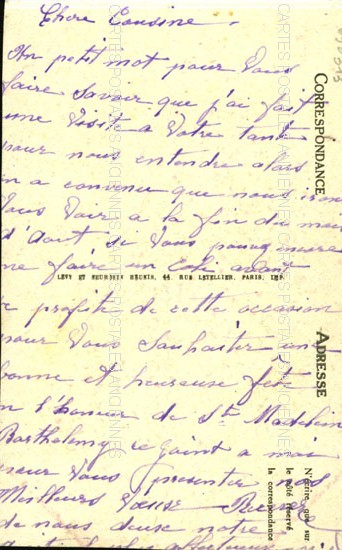 Chere Cousine.
Un petit mot pour Vous
faire Savoir que j'ai fait
une Visite a Votre tante
pour nous entendre alors
on a convenu que nous irons
Vous Voir a la fin du mois
d'Aout si Vous pouvez encore
me faire un Coli avant
LÉVY ET NEURDEIN RÉUNIS, 44, RUE LETELLIER, PARIS, IMP.
je profite de cette occasion
pour Vous Souhaiter une
bonne et heureuse fête
en l'honneur de Ste Madeleine
Barthelemy se joint a moi
pour Vous presenter
Meilleurs Voeux
de nous deux notre
CORRESPONDANCE
ADRESSE
N'écrire que sur
le côté réservé
la correspondance